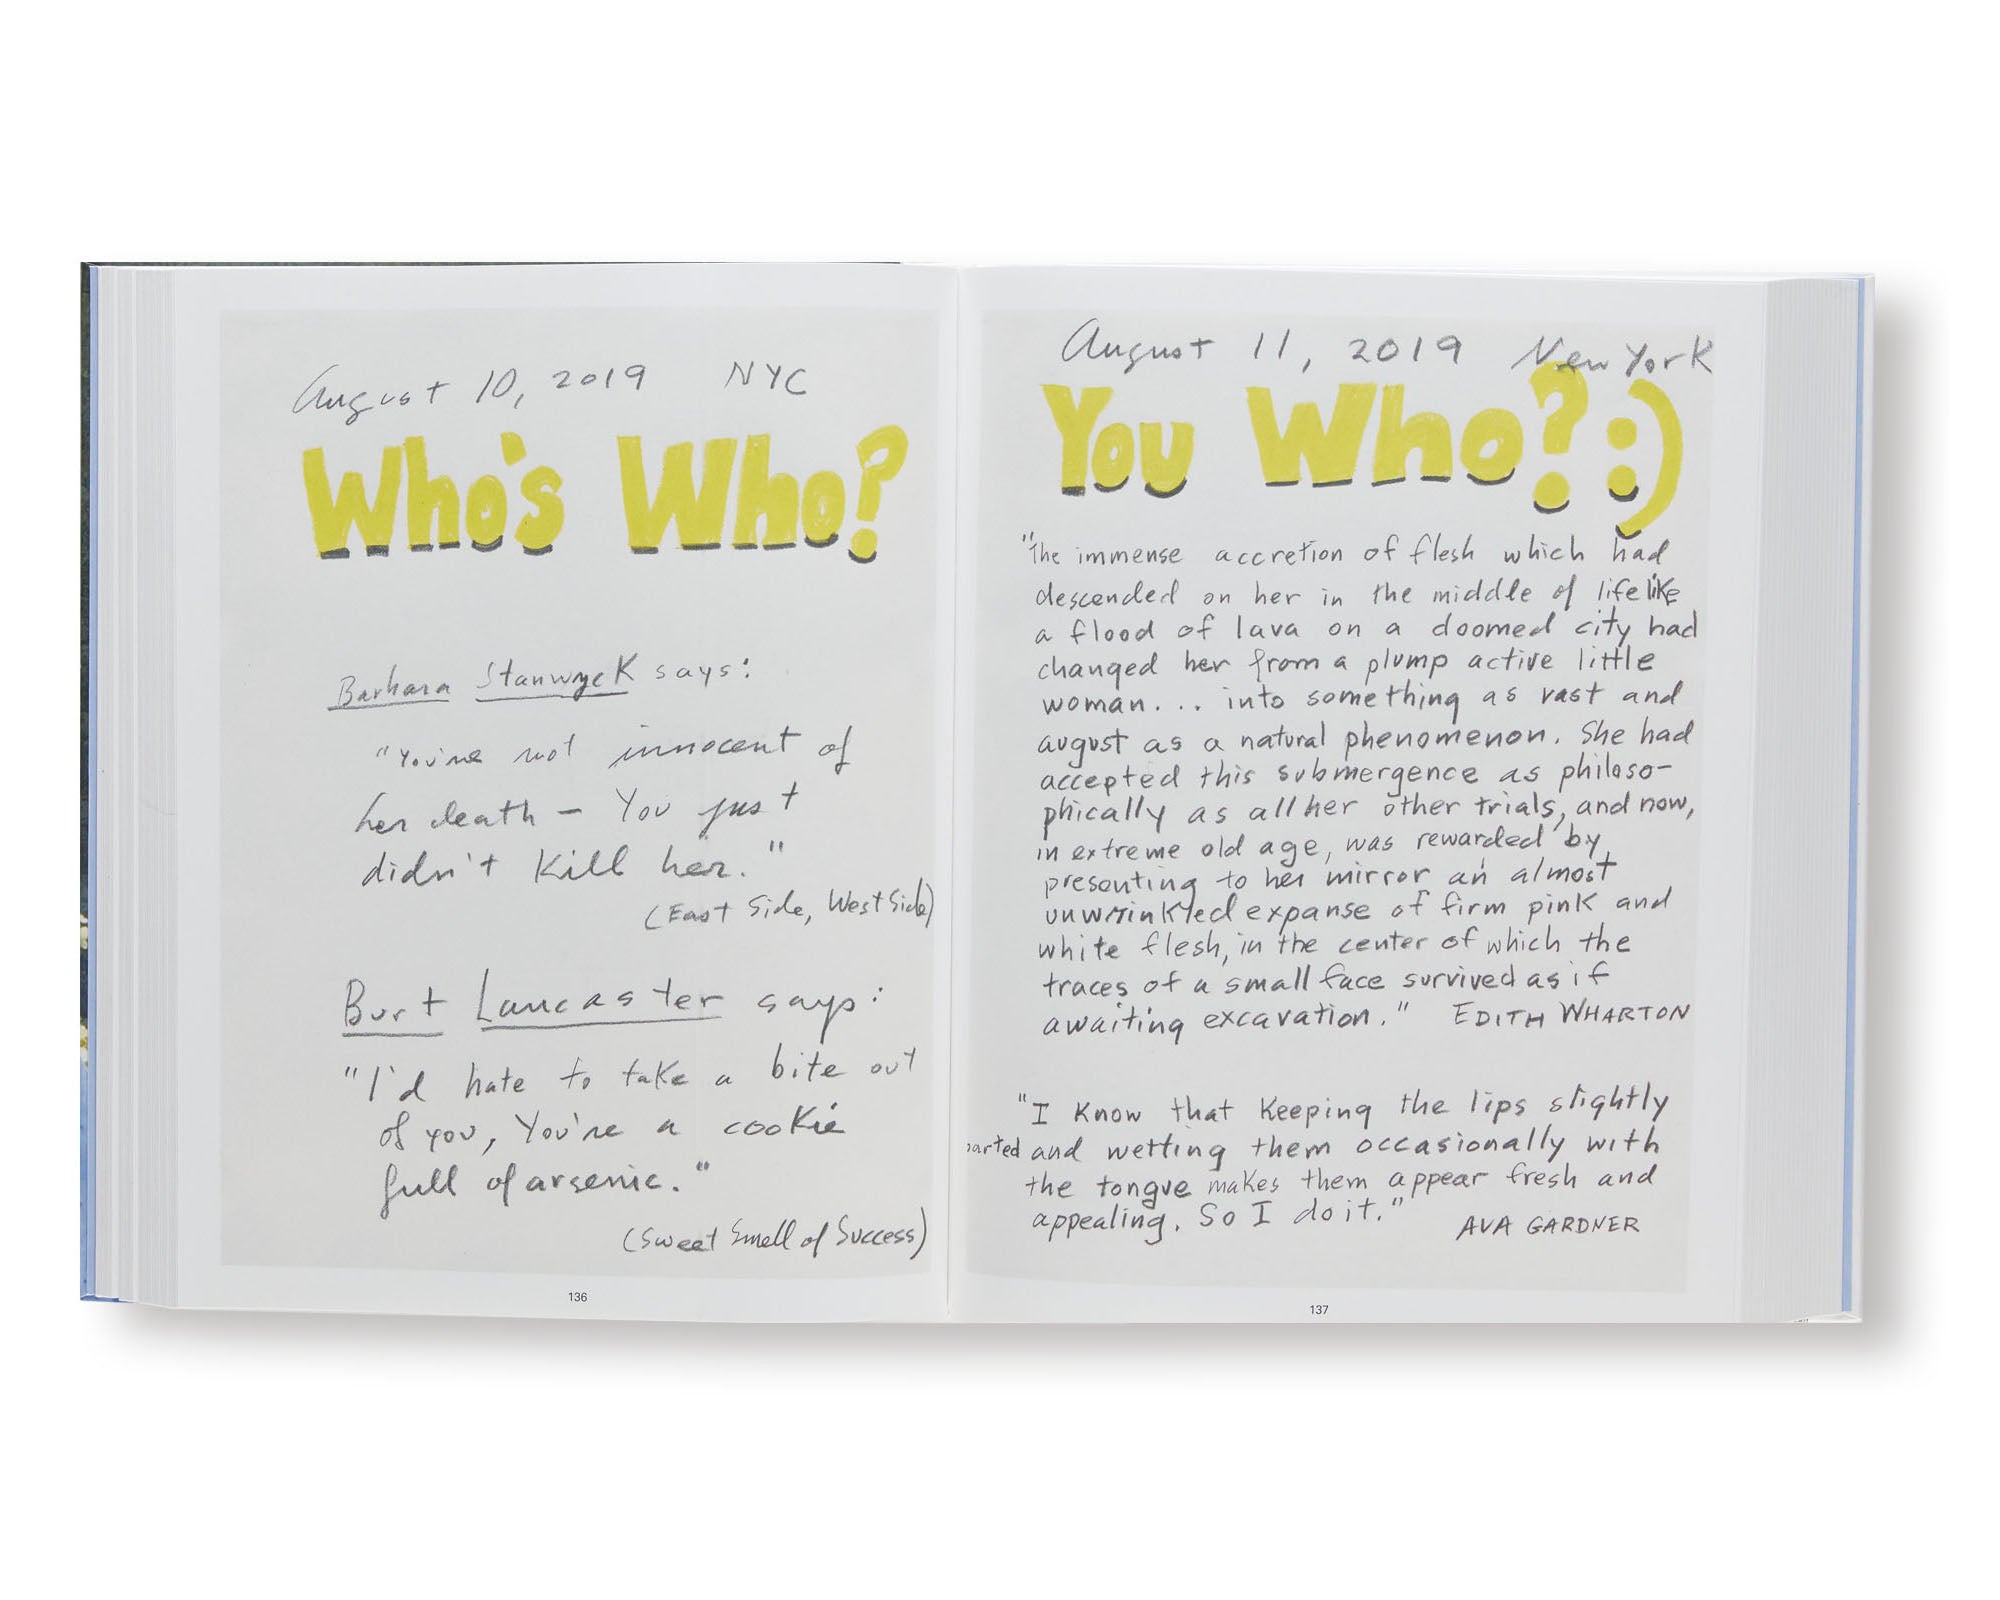 August 10, 2019 NYC
Who's Who?
Barbara Stanwyck says:
"You're not innocent of
her death – You just
didn't kill her."
(East Side, West Side)
Burt Lancaster says:
"I'd hate to take a bite out
of you, You're a cookie
full of arsenic."
(Sweet Smell of Success)
136
August 11, 2019 New York
You Who? :)
"The immense accretion of flesh which had
descended on her in the middle of life like
a flood of lava on a doomed city had
changed her from a plump active little
woman... into something as vast and
august as a natural phenomenon. She had
accepted this submergence as philoso-
phically as all her other trials, and now,
in extreme old age, was rewarded by
presenting to her mirror an almost
unwrinkled expanse of firm pink and
white flesh, in the center of which the
traces of a small face survived as if
awaiting excavation." EDITH WHARTON
"I know that keeping the lips slightly
parted and wetting them occasionally with
the tongue makes them appear fresh and
appealing. So I do it."
AVA GARDNER
137